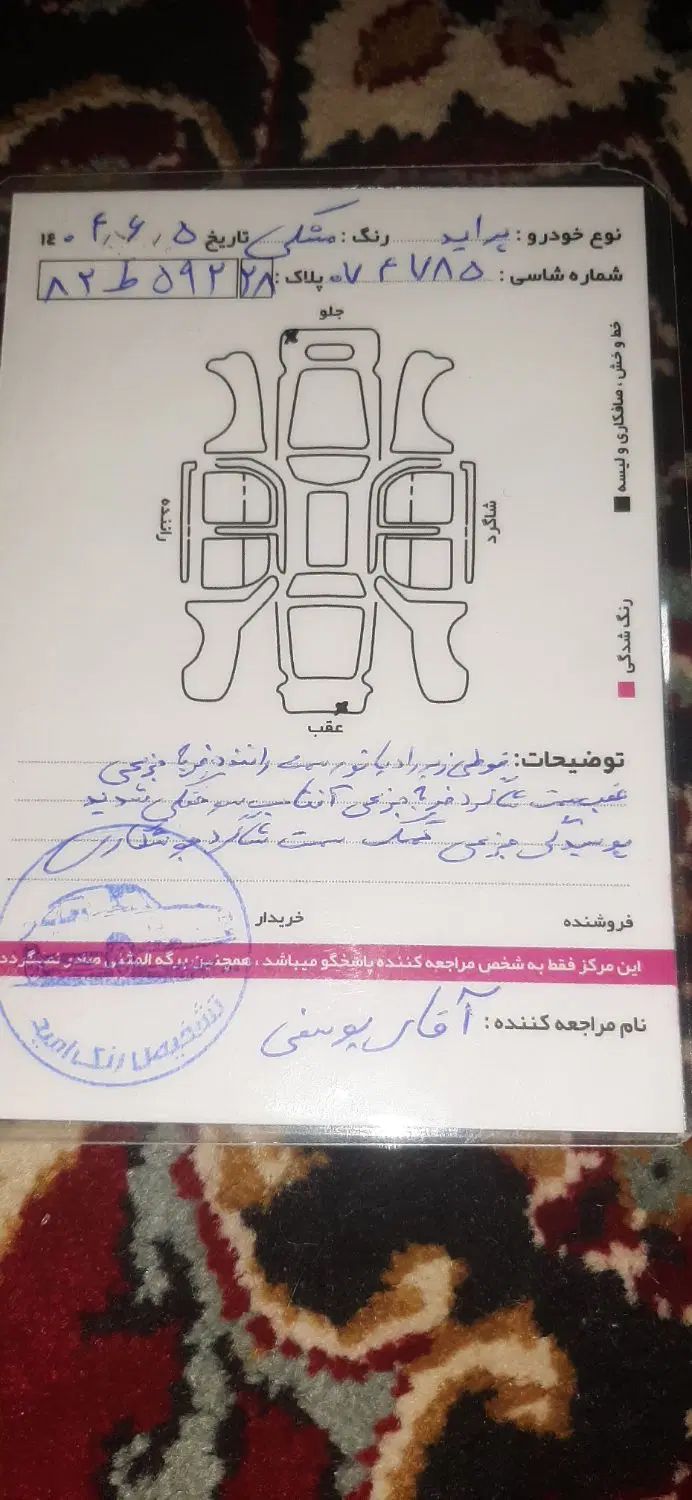 نوع خودرو : پراید رنگ : مشکی تاریخ ۱۴۰۴٫۶٫۵
شماره شاسی : ۰۷۴۷۸۵ پلاک : ۲۸ ۵۹۲ ط ۸۲
جلو
خط و خش ، صافکاری و لیسه
راننده
شاگرد
رنگ شدگی
عقب
توضیحات: قوطی زیر رادیاتور سمت راننده ضربه جزیی
عقب سمت شاگرد ضربه جزیی آفتاب سوختگی شدید
پوسیدگی جزیی سمت شاگرد
فروشنده
خریدار
این مرکز فقط به شخص مراجعه کننده پاسخگو میباشد ، همچنین برگه المثنی صادر نمیگردد
نام مراجعه کننده : آقای یوسفی
تشخیص رنگ امید